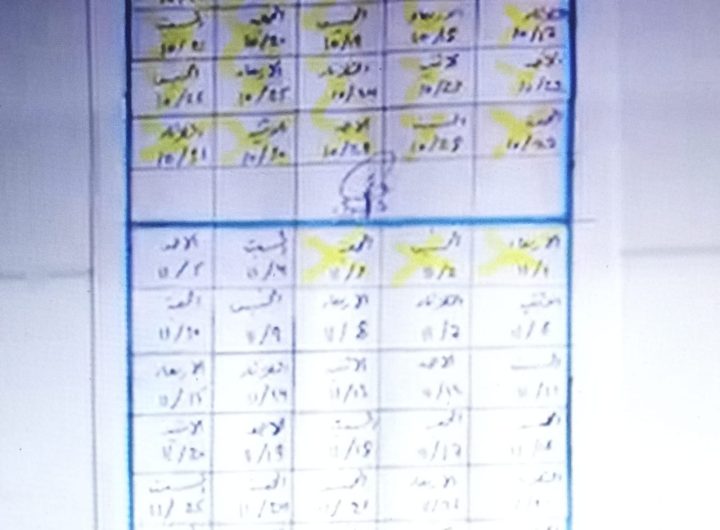 الثلاثاء الاربعاء الخميس الجمعة السبت
10/17 10/18 10/19 10/20 10/21
الاحد الاثنين الثلاثاء الاربعاء الخميس
10/22 10/23 10/24 10/25 10/26
الجمعة السبت الاحد الاثنين الثلاثاء
10/27 10/28 10/29 10/30 10/31
الاربعاء الخميس الجمعة السبت الاحد
11/1 11/2 11/3 11/4 11/5
الاثنين الثلاثاء الاربعاء الخميس الجمعة
11/6 11/7 11/8 11/9 11/10
السبت الاحد الاثنين الثلاثاء الاربعاء
11/11 11/12 11/13 11/14 11/15
الخميس الجمعة السبت الاحد الاثنين
11/16 11/17 11/18 11/19 11/20
الثلاثاء الاربعاء الخميس الجمعة السبت
11/22 11/23 11/24 11/25